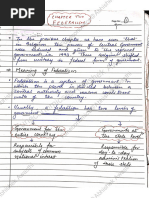 CHAPTER TWO
FEDERALISM
In the previous chapter we have seen that
in Belgium the power of central Government
Government in 1993. Their regional
from unitary to federal government.
Meaning of Federalism
Federalism is a system of government in
which the power is divided between a
central authority and various constituent
units of the country.
Usually a federation has two levels of
government
Government for the
entire country
Governments at
the state level
Responsible for
subjects of common
national interest
Responsible for
day-to-day
administration
of their state